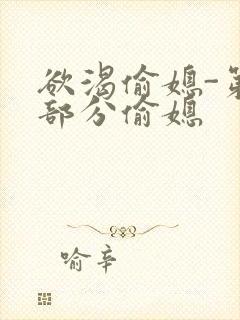 欲渴偷媳-第
部分偷媳
喻辛